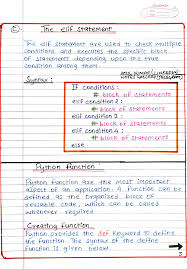 The elif statement
The elif statement are used to check multiple
conditions and executes the specific block
of statements depending upon the true
condition among them.
Syntax :
If conditions :
# block of statements
elif condition 2 :
# block of statements
elif condition 3 :
# block of statements
else
Python function :
Python function are the most important
aspect of an application. A function can be
defined as the organized block of
reusable code, which can be called
whenever required
Creating function :
Python provides the def keyword to define
the function. The syntax of the define
function is given below.
3